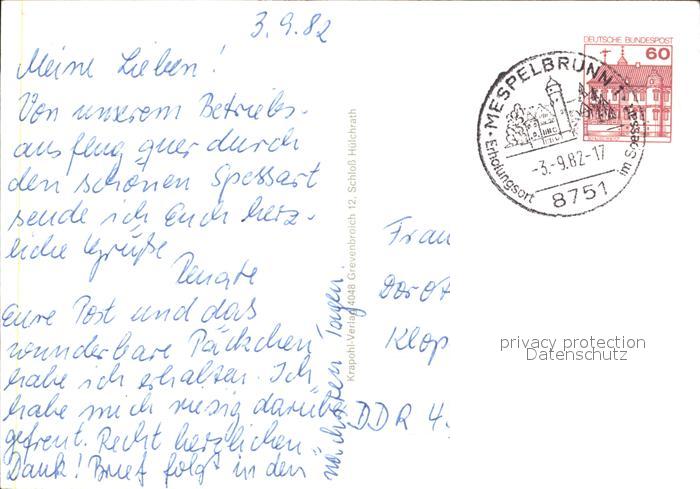 3.9.82
Meine Lieben!
Von unserem Betriebs-
ausflug quer durch
den schönen Spessart
sende ich Euch herz-
liche Grüße
Renate
Eure Post und das
wunderbare Päckchen
habe ich erhalten. Ich
habe mich riesig darüber
gefreut. Recht herzlichen
Dank! Brief folgt in den
nächsten Tagen.
Krapohl-Verlag, 4048 Grevenbroich 12, Schloß Hülchrath
DEUTSCHE BUNDESPOST
60
MESPELBRUNN 1
-3.-9.82-17
8751
Erholungsort im Spessart
Frau
Dorot
Klop
DDR 4.
privacy protection
Datenschutz